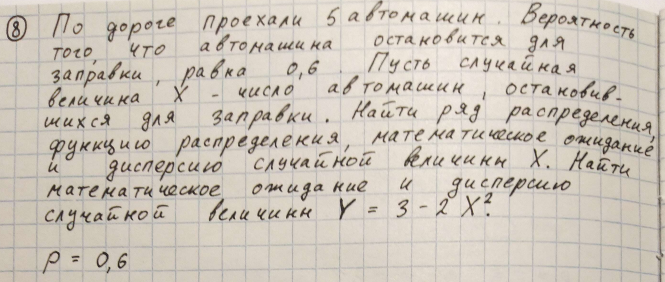 ⑧ По дороге проехали 5 автомашин. Вероятность
того, что автомашина остановится для
заправки, равна 0,6. Пусть случайная
величина X - число автомашин, остановив-
шихся для заправки. Найти ряд распределения,
функцию распределения, математическое ожидание
и дисперсию случайной величины X. Найти
математическое ожидание и дисперсию
случайной величины Y = 3 - 2 X².
p = 0,6